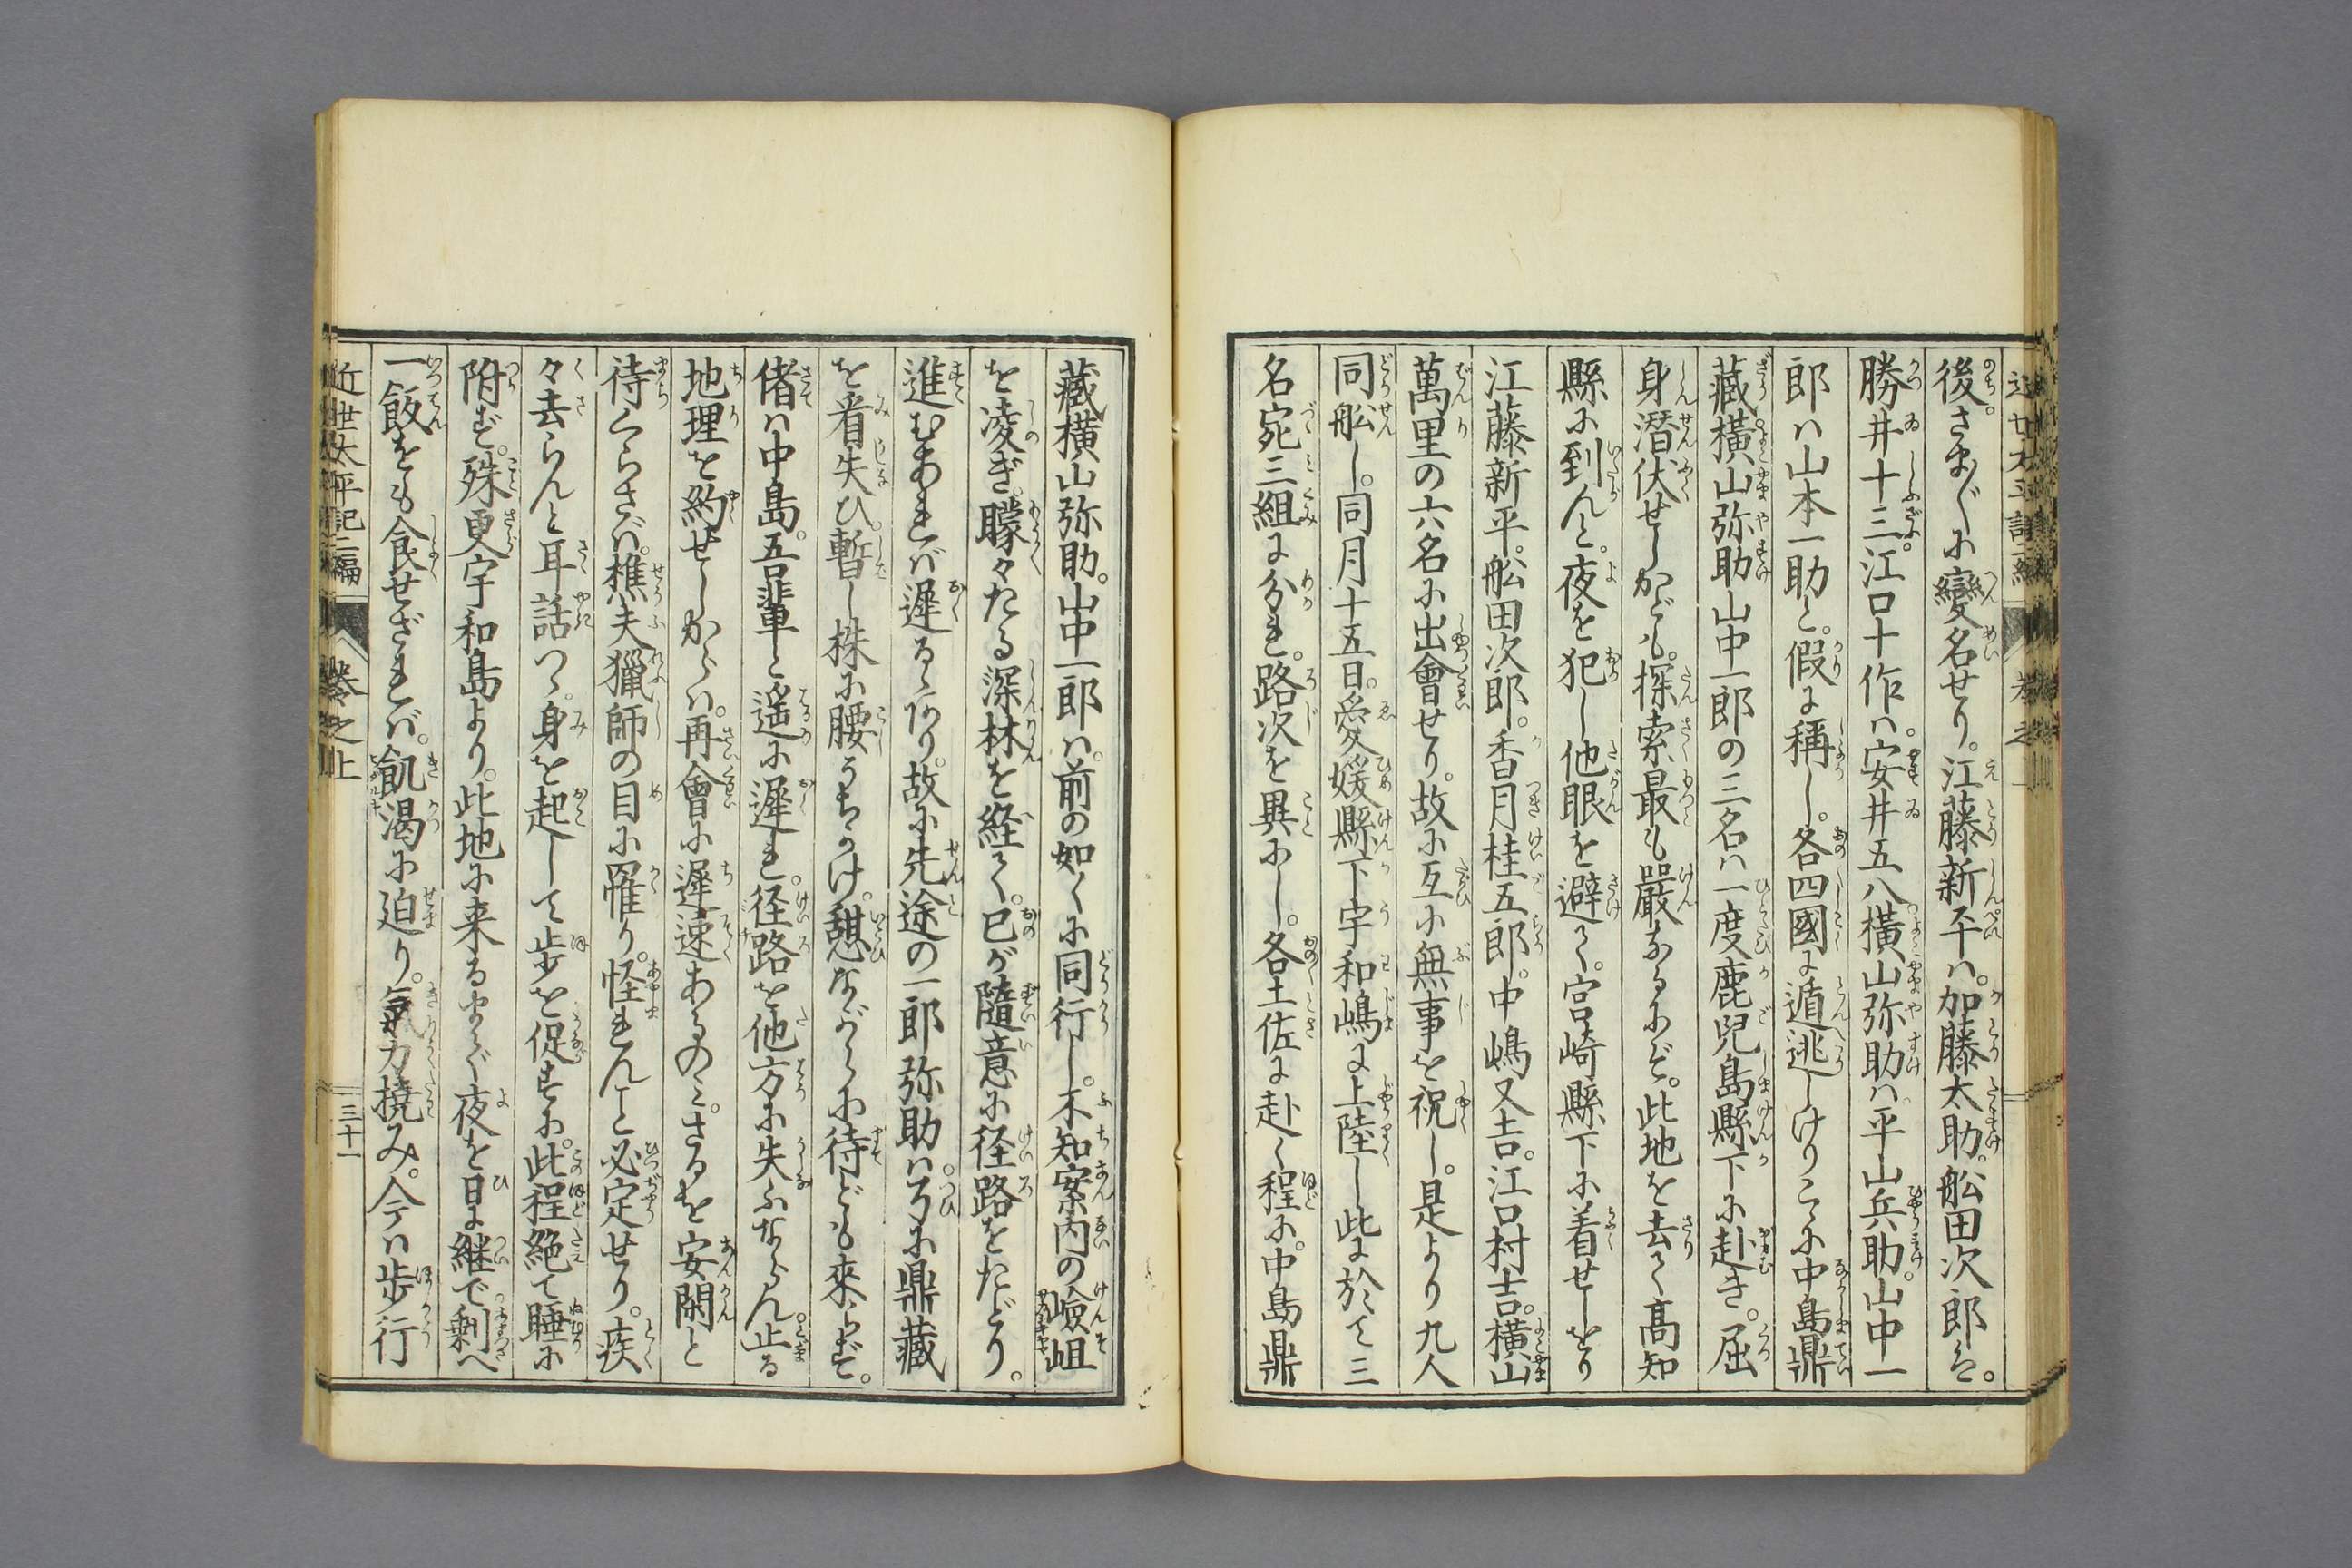 後。さまざまに變名せり。江藤新平ハ。加藤太助。舩田次郎ハ。
勝井十三。江口十作ハ。安井五八。横山弥助ハ平山兵助。山中一
郎ハ山本一助と。假に稱し。各四國に遁逃しけりこゝに中島鼎
藏。横山弥助山中一郎の三名ハ一度鹿兒島縣下に赴き。屈
身潜伏せしかども。探索最も嚴なるにぞ。此地を去て髙知
縣に到んと。夜を犯し他眼を避て。宮崎縣下に着せしをり
江藤新平。舩田次郎。香月桂五郎。中嶋又吉。江口村吉。横山
萬里の六名に出會せり。故に互に無事を祝し。是より九人
同舩し。同月十五日。愛媛縣下宇和嶋に上陸し此に於て三
名宛三組に分れ。路次を異にし。各土佐に赴く程に。中島鼎
藏横山弥助。山中一郎ハ。前の如くに同行し。不知案内の嶮岨
を凌ぎ。朦々たる深林を経て。己が隨意に径路をたどり。
進むあれバ遲るゝ有り。故に先途の一郎弥助ハ。つひに鼎藏
を看失ひ。暫し株に腰うちかけ。憩ながらに待ども來らず。
偖ハ中島。吾輩と遥に遲れ。径路を他方に失ふならん。止る
地理を約せしからハ。再會に遲速あるのミ。さるを安閑と
待くらさバ。樵夫獵師の目に罹り。怪れんこと必定せり。疾
々去らんと耳話つゝ。身を起して歩を促すに。此程絶て睡に
附ず。殊更宇和島より。此地に来るまで夜を日に継で。剰へ
一飯をも食せざれバ。飢渇に迫り。氣力撓み。今ハ歩行
近世太平記二編
巻之上
三十一